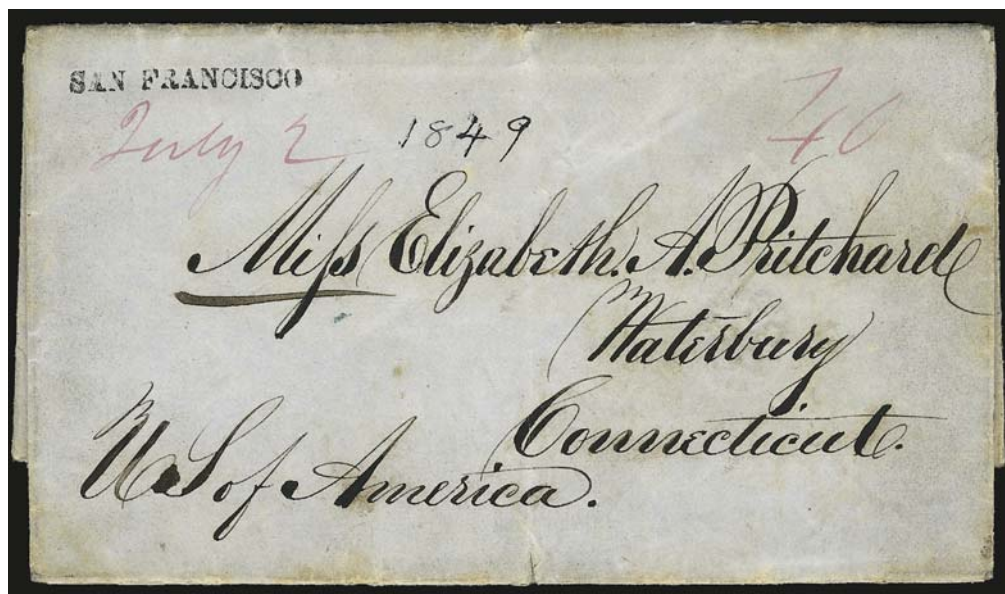 SAN FRANCISCO
July 2 1849 40
Miss Elizabeth. A. Pritchard
Waterbury
Connecticut.
U S of America.